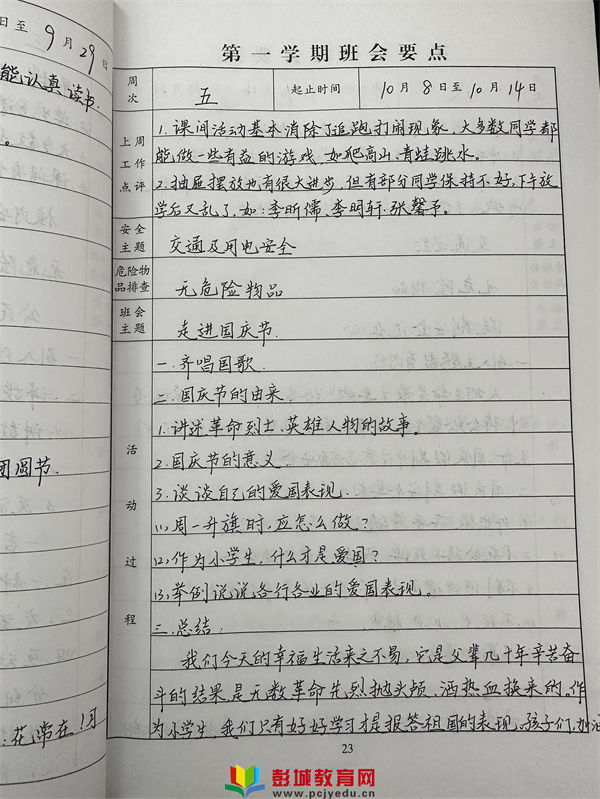 日至9月29日
能认真读书.
。
团圆节.
:花常在!月
第一学期班会要点
周次 五 起止时间 10月8日至10月14日
上周工作点评
1.课间活动基本消除了追跑打闹现象,大多数同学都
能做一些有益的游戏.如爬高山.青蛙跳水。
2.抽屉摆放也有很大进步,但有部分同学保持不好,下午放
学后又乱了,如:李昕儒、李明轩.张馨予。
安全主题 交通及用电安全
危险物品排查 无危险物品
班会主题 走进国庆节.
活动过程
一.齐唱国歌.
二.国庆节的由来.
1.讲述革命烈士.英雄人物的故事。
2.国庆节的意义.
3.谈谈自己的爱国表现.
(1)周一升旗时,应怎么做?
(2)作为小学生,什么才是爱国?
(3)举例说说各行各业的爱国表现。
三.总结:
我们今天的幸福生活来之不易,它是父辈几十年辛苦奋
斗的结果,是无数革命先烈抛头颅、洒热血换来的。作
为小学生,我们只有好好学习才是报答祖国的表现。孩子们,加油
23
彭城教育网
www.pcjyedu.cn